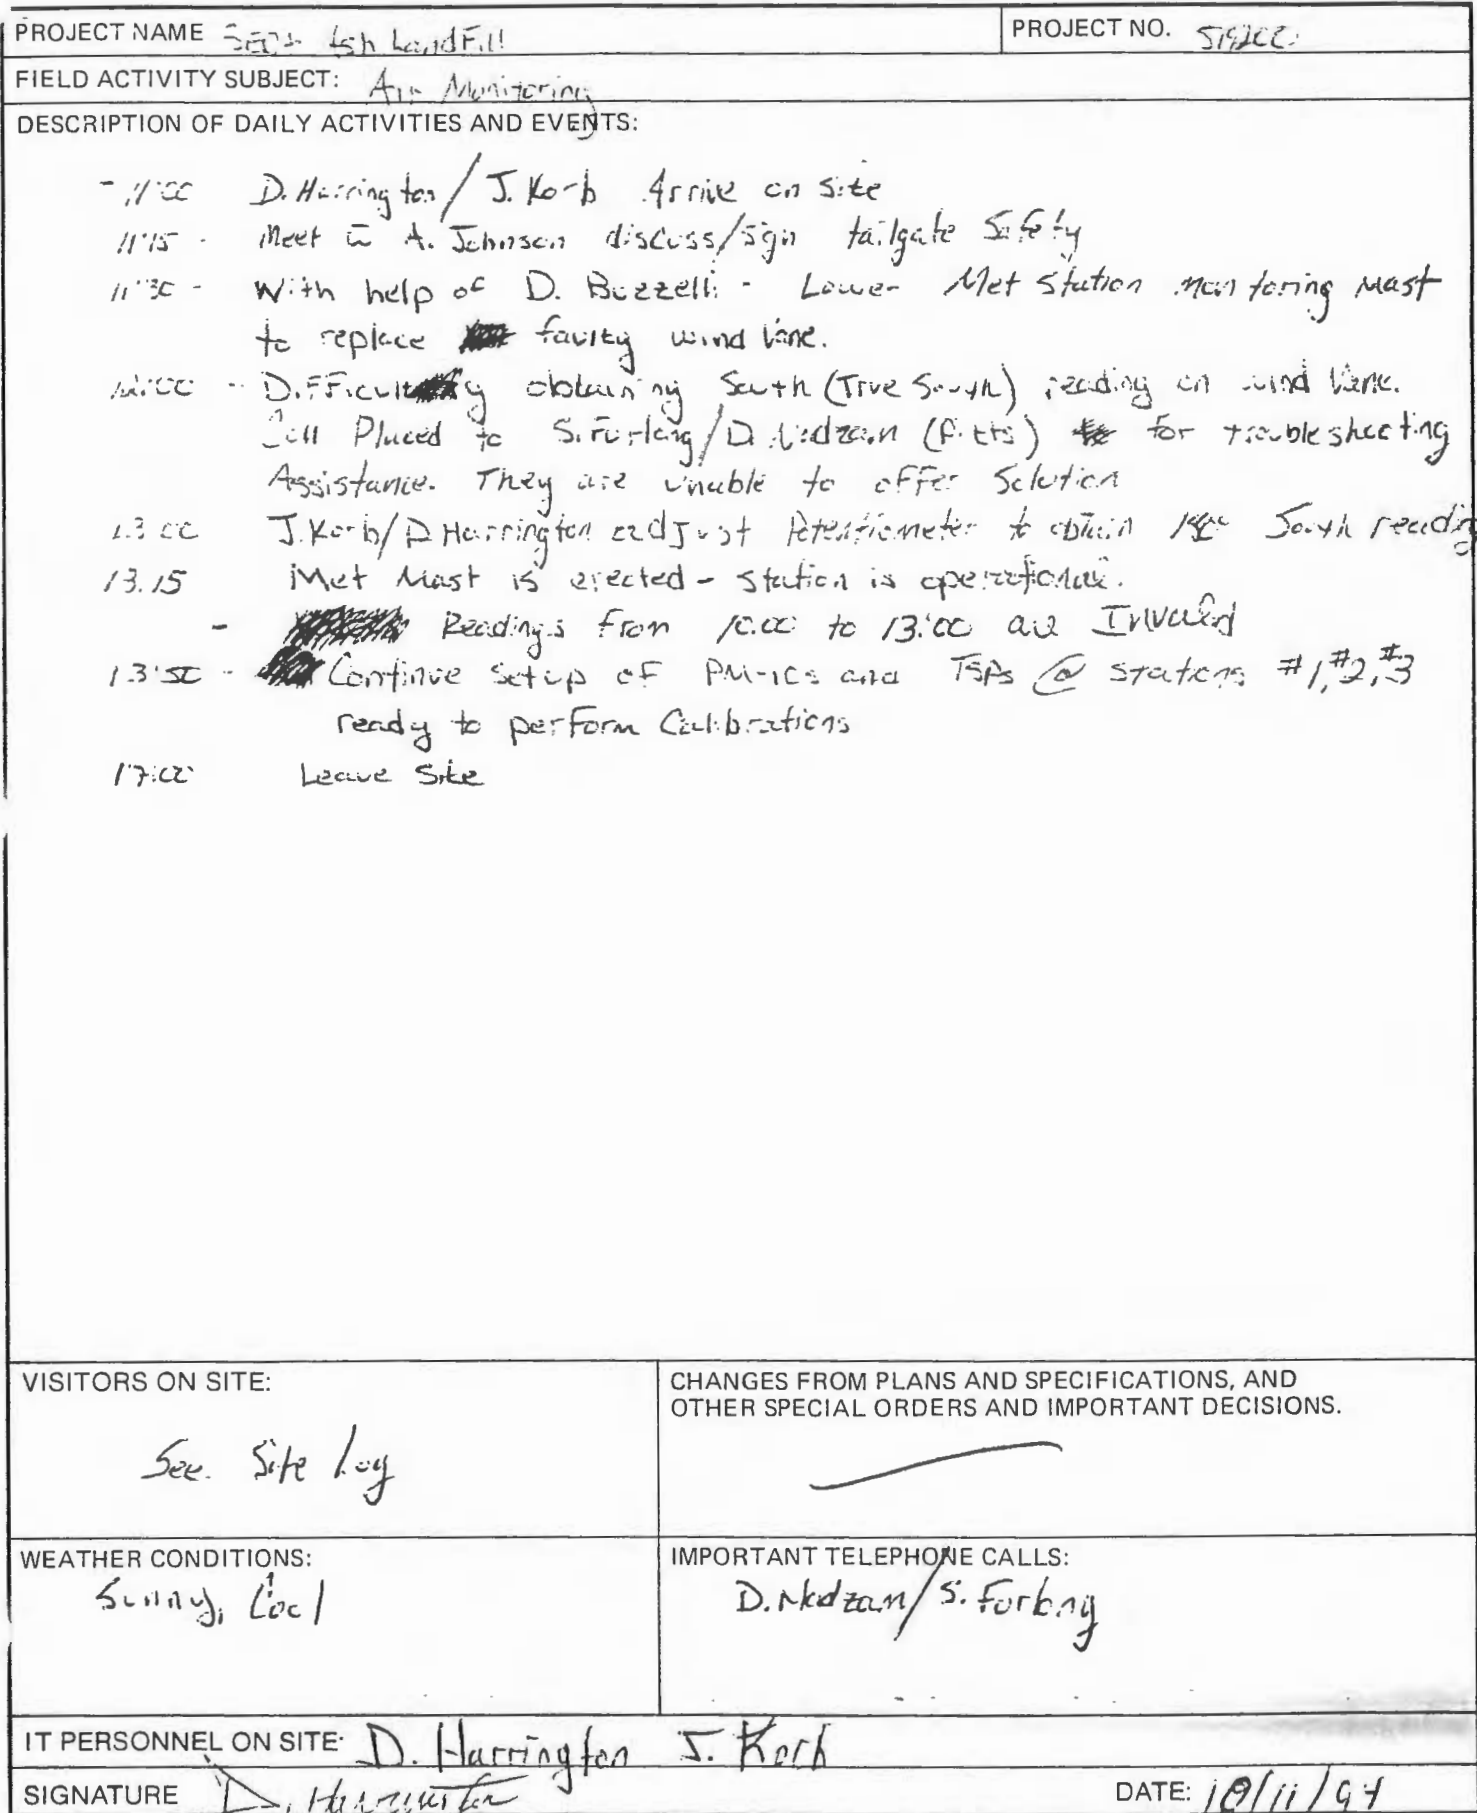 PROJECT NAME Ash LandFill
PROJECT NO.
FIELD ACTIVITY SUBJECT: Air Monitoring
DESCRIPTION OF DAILY ACTIVITIES AND EVENTS:
- 11:00 D. Harrington / J. Korb Arrive on site
11:15 - Meet w A. Johnson discuss/sign tailgate Safety
11:30 - With help of D. Buzzelli - Lower Met Station monitoring Mast
to replace faulty wind vane.
12:00 - Difficulty obtaining South (True South) reading on wind Vane.
Call Placed to S. Furlong/D. Nedzam (Pitts) for troubleshooting
Assistance. They are unable to offer Solution
13:00 J. Korb/D Harrington adjust Potentiometer to obtain South reading
13:15 Met Mast is erected - station is operational.
- Readings from 10:00 to 13:00 are Invalid
13:50 - Continue Setup of PM-10s and TSPs @ stations #1, #2, #3
ready to perform Calibrations
17:00 Leave Site
VISITORS ON SITE:
See Site Log
CHANGES FROM PLANS AND SPECIFICATIONS, AND
OTHER SPECIAL ORDERS AND IMPORTANT DECISIONS.
WEATHER CONDITIONS:
Sunny, Cool
IMPORTANT TELEPHONE CALLS:
D. Nedzam/S. Furlong
IT PERSONNEL ON SITE: D. Harrington J. Korb
SIGNATURE D. Harrington
DATE: 10/11/94